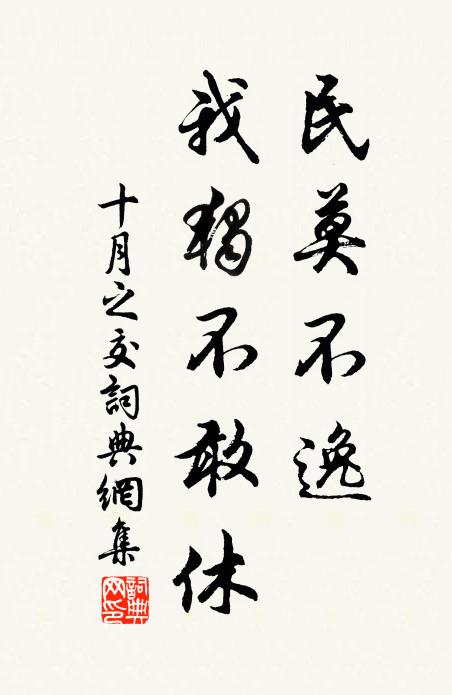 民莫不逸
我獨不敢休
十月之交詞典網集
詞典
网印